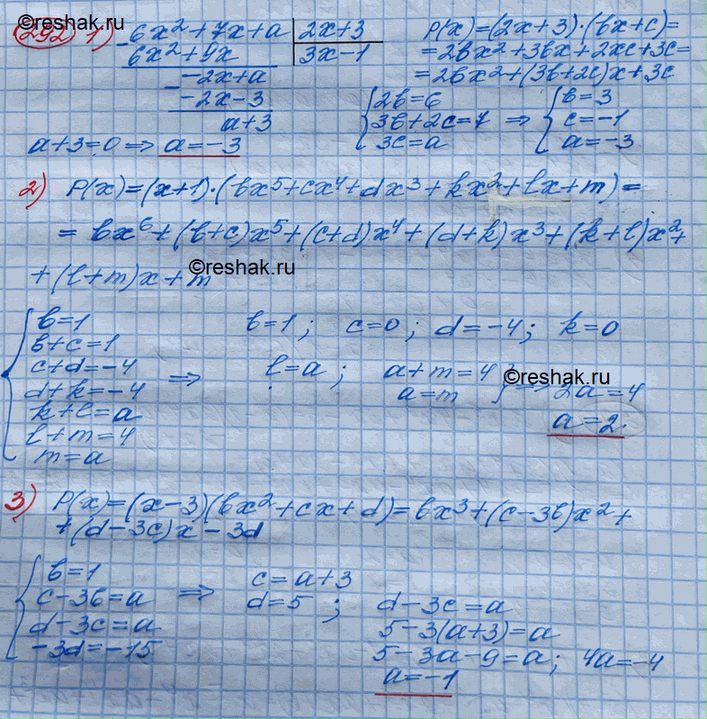 ©reshak.ru
292 1) 6x²+7x+a | 2x+3
6x²+9x 3x-1
-2x+a
-2x-3
a+3
a+3=0 ⇒ a=-3
P(x)=(2x+3)·(bx+c)=
=2bx²+3bx+2xc+3c=
=2bx²+(3b+2c)x+3c
{2b=6
3b+2c=7 ⇒
3c=a
{b=3
c=-1
a=-3
2) P(x)=(x+1)·(bx⁵+cx⁴+dx³+kx²+lx+m)=
= bx⁶+(b+c)x⁵+(c+d)x⁴+(d+k)x³+(k+l)x²+
+(l+m)x+m
©reshak.ru
{b=1
b+c=1
c+d=-4
d+k=-4 ⇒
k+l=a
l+m=4
m=a
b=1; c=0; d=-4; k=0
l=a; a+m=4
a=m } ⇒ 2a=4
©reshak.ru
a=2.
3) P(x)=(x-3)(bx²+cx+d)=bx³+(c-3b)x²+
+(d-3c)x-3d
{b=1
c-3b=a ⇒
d-3c=a
-3d=-15
c=a+3
d=5; d-3c=a
5-3(a+3)=a
5-3a-9=a; 4a=-4
a=-1